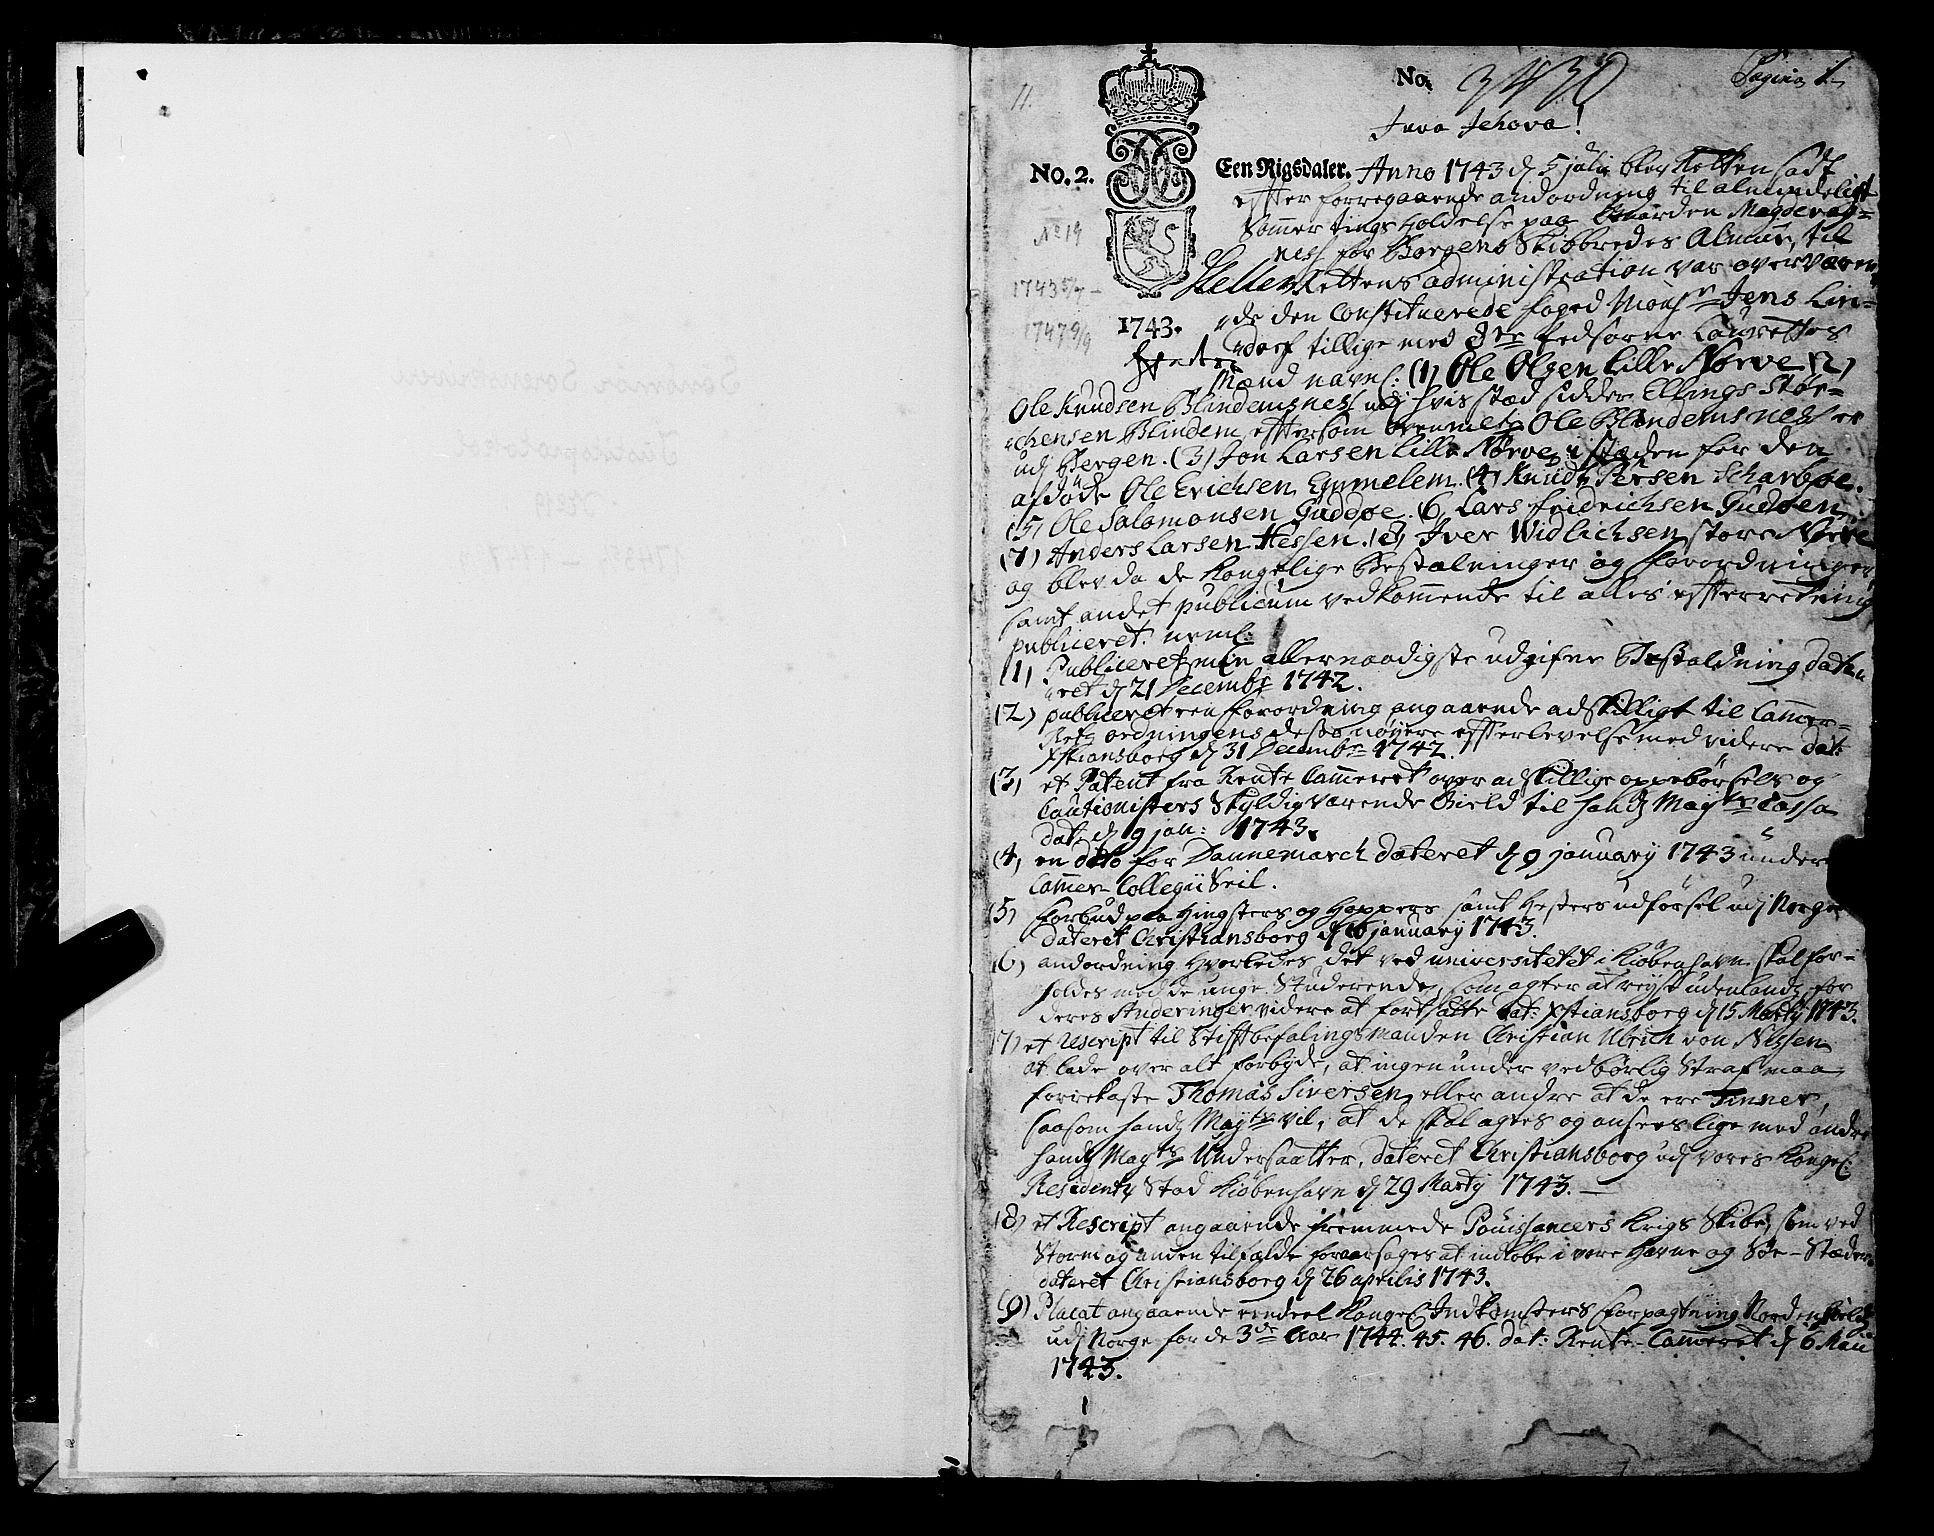 No. 3430
Pagina 1
11.
Juva Jehova!
No. 2.
Een Rigsdaler. Anno 1743 d 5 julij blev Retten sadt
effter forregaaende andordning til almindeligt
Sommer tings holdelse paa Gaarden Magderag=
No 19
nes for Borgens Skibbredes Almue, til
Rettens administration var overværen
1743 5/7 -
de den Constituerede foged Mons.r Jens Lin-
1747 9/9
1743.
dorf tillige med 8te Eedsorne Laugrettes
Mænd navnl: (1) Ole Olsen Lille Nørve (2)
Ole Knudsen Blindemsnes udj hvis stæd sidder Ellings Stor-
chensen Blindem eftersom bemmelte Ole Blindemsnes er
udj Bergen. (3) Jon Larsen Lille Nørve, i stæden for den
afdøde Ole Erichsen Emmelem. (4) Knud Persen Scharbøe.
(5) Ole Salomonsen Guddøe. (6) Lars fridrichsen Guddøen,
(7) Anders Larsen Hessen. (8) Iver Widlichsen store Nørve
og blev da de kongelige Bestalninger og forordninger
samt andet publicum vedkommende til alles effterretning
publiceret. neml:
(1) Publiceret min allernaadigste udgifne Bestaldning date-
ret d 21 Decembr 1742.
(2) publiceret een forordning angaaende adskilligt til Cammer-
Retz ordningens desto nøyere effterlevelse med videre dat:
Xstiansborg d 31 Decembr 1742.
(3) et Patent fra Rente Cammeret over adskillige oppebørsels og
Cautionisters Skyldigværende Gield til hands Mayts Cassa
dat: d 9 jan: 1743.
(4) en dito for Dannemarch dateret d 9 january 1743 under
Cammer Collegii Seil.
(5) Forbud paa Hingsters og Hoppers samt Hesters udførsel udj Norge
dateret Christiansborg d 16 january 1743.
(6) andordning hvorledes det ved universitetet i Kiøbenhavn skal for-
holdes med de unge Studerende, som agter at reyse udenlands, for
deres Studeringer videre at fortsætte dat: Xstiansborg d 15 Marty 1743.
(7) et Rescript til Stiftbefalingsmanden Christian Ulrich von Nissen
at lade over alt forbyde, at ingen under vedbørlig Straf maa
forrekaste Thomas Siversen, eller andre at de ere Finner,
saasom hands Mayts vil, at de skal agtes og ansees lige med andre
hands Mayts Undersaatter, dateret Christiansborg udj vores kongel:
Residentz Stad Kiøbenhavn d 29 Marty 1743.
(8) et Rescript angaaende fremmede Pouissancers Krigs Skibe, som ved
Storm og anden tilfælde foraarsages at indløbe i vore Havne og Søe-Stæder
dateret Christiansborg d 26 aprilis 1743.
(9) Placat angaaende eendeel kongel Indkomsters forpagtning Nordenfields
udj Norge for de 3de Aar 1744. 45. 46. dat: Rente-Cammeret d 6 Maii
1743.